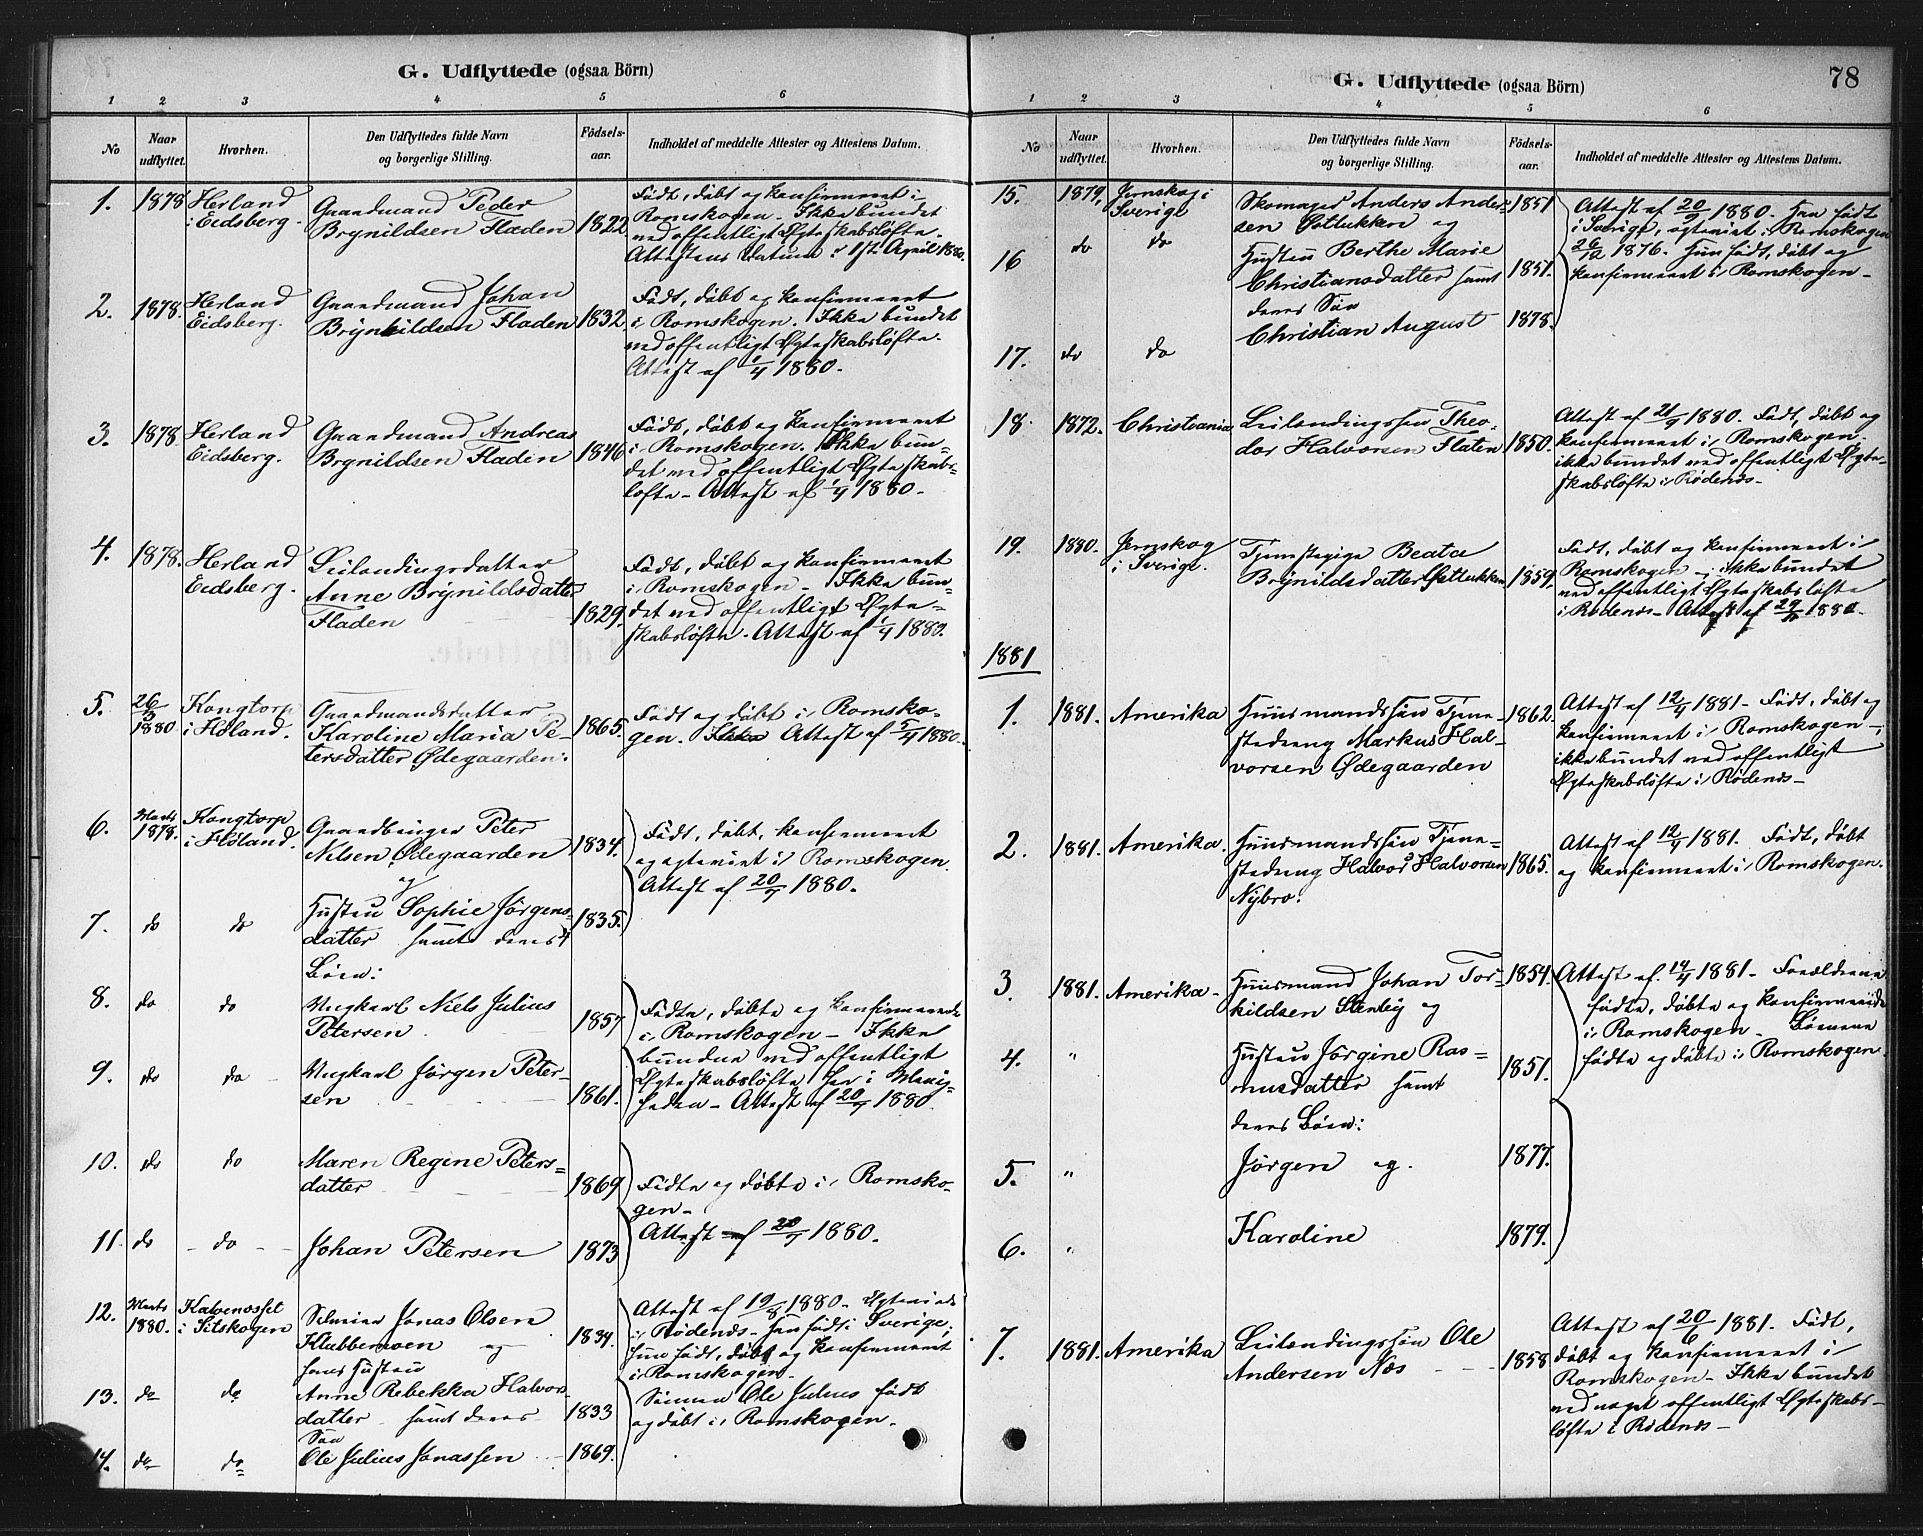 G. Udflyttede (ogsaa Börn)
1 2 3 4 5 6
No
Naar udflyttet.
Hvorhen.
Den Udflyttedes fulde Navn og borgerlige Stilling.
Födsels-aar.
Indholdet af meddelte Attester og Attestens Datum.
1. 1878 Herland i Eidsberg.
Gaardmand Peder
Brynildsen Fladen 1822
Født, døbt og konfirmeret i
Romskogen. Ikke bundet
ved offentligt Ægteskabsløfte.
Attestens Datum: 1st April 1880.
2. 1878. Herland Eidsberg.
Gaardmand Johan
Brynhildsen Fladen 1832
Født, døbt og konfirmeret
i Romskogen. Ikke bundet
ved offentligt Ægteskabsløfte.
Attest af 1/4 1880.
3. 1878. Herland Eidsberg.
Gaardmand Andreas
Brynildsen Fladen 1846
Født, døbt og konfirmeret
i Romskogen. Ikke bun-
det ved offentligt Ægteskabs-
løfte - Attest af 1/4 1880.
4. 1878. Herland Eidsberg.
Leilendingsdatter
Anne Brynildsdatter
Fladen 1829.
Født, døbt og konfirmeret
i Romskogen - Ikke bun-
det ved offentligt Ægte-
skabsløfte. Attest af 1/4 1880.
5. 26/3 1880 Kongtorp i Høland.
Gaardmandsdatter
Karoline Maria Pe-
tersdatter Ødegaarden. 1865.
Født og døbt i Romsko-
gen. Attest af 5/4 1880.
6. Marts 1878. Kongtorp i Høland.
Gaardbruger Peter
Nilsen Ødegaarden 1834.
og
Født, døbt, konfirmeret
og ægteviet i Romskogen.
Attest af 20/4 1880.
7. do do
Hustru Sophie Jørgens-
datter samt deres 4 1835.
Børn:
8. do do
Ungkarl Niels Julius
Petersen 1857
Fødte, døbte og konfirmerede
i Romskogen - Ikke
bundne ved offentligt
Ægteskabsløfte her i Menig-
heden - Attest af 20/4 1880.
9. do do
Ungkarl Jørgen Peter-
sen 1861.
10. do do
Maren Regine Peters-
datter 1869
Fødte og døbte i Romsko-
gen -
Attest af 20/4 1880.
11. do do
Johan Petersen 1873
12. Marts 1880. Kalvenosset i Sitskogen
Selveier Jonas Olsen
Klubbemoen og 1834.
hans Hustru
Attest af 19/8 1880. Ægteviede
i Rødenes. Han født i Sverige;
hun født, døbt og konfirmeret
i Romskogen.
Sønnen Ole Julius født
og døbt i Romskogen.
13. do do
Anne Rebekka Halvors-
datter samt deres 1833
Søn
14. do do
Ole Julius Jonassen 1869.
G. Udflyttede (ogsaa Börn)
78
1 2 3 4 5 6
No
Naar udflyttet.
Hvorhen.
Den Udflyttedes fulde Navn og borgerlige Stilling.
Födsels-aar.
Indholdet af meddelte Attester og Attestens Datum.
15. 1879, Jernskog i Sverige
Skomager Anders Ander-
sen og 1851
Attest af 20/9 1880. Han født
i Sverige, ægteviet i Romskogen
26/12 1876. Hun født, døbt og
konfirmeret i Romskogen -
16 do do
Hustru Berthe Marie
Christiansdatter samt 1857.
deres Søn
Christian August 1878.
17. do do
18. 1872. Christiania
Leilendingssøn Theo-
dor Halvorsen Flaten 1850.
Attest af 21/9 1880. Født, døbt og
konfirmeret i Romskogen.
ikke bundet ved offentligt Ægte-
skabsløfte i Rødenes -
19. 1880. Jernskog i Sverige.
Tjenestepige Beata
Brynildsdatter 1859,
Født, døbt og konfirmeret i
Romskogen - ikke bundet
ved offentligt Ægteskabsløfte
i Rødenes - Attest af 1880.
1881
1. 1881. Amerika
Huusmandssøn Tjene-
stedreng Markus Hal-
vorsen Ødegaarden 1862.
Attest af 12/4 1881 - Født, døbt og
konfirmeret i Romskogen -,
ikke bundet ved offentligt
Ægteskabsløfte i Rødenes -
2. 1881. Amerika.
Huusmandssøn Tjene-
stedreng Halvor Halvorsen
Nybro. 1865.
Attest af 12/4 1881. Født, døbt
og konfirmeret i Romskogen.
3. 1881. Amerika -
Huusmand Johan Tor-
kildsen og 1854.
Attest af 14/4 1881 - Forældrene
fødte, døbte og konfirmerede
i Romskogen - Børnene
fødte og døbte i Romskogen.
4. "
Hustru Jørgine Ras-
musdatter samt 1851.
deres Børn:
5. " Jørgen og. 1877.
6. " Karoline 1879.
7. 1881. Amerika
Leilendingssøn Ole
Andersen Næs 1858
Attest af 20/6 1881 - Født,
døbt og konfirmeret i
Romskogen - Ikke bundet
ved noget offentligt Ægteskabs-
løfte i Rødenes -